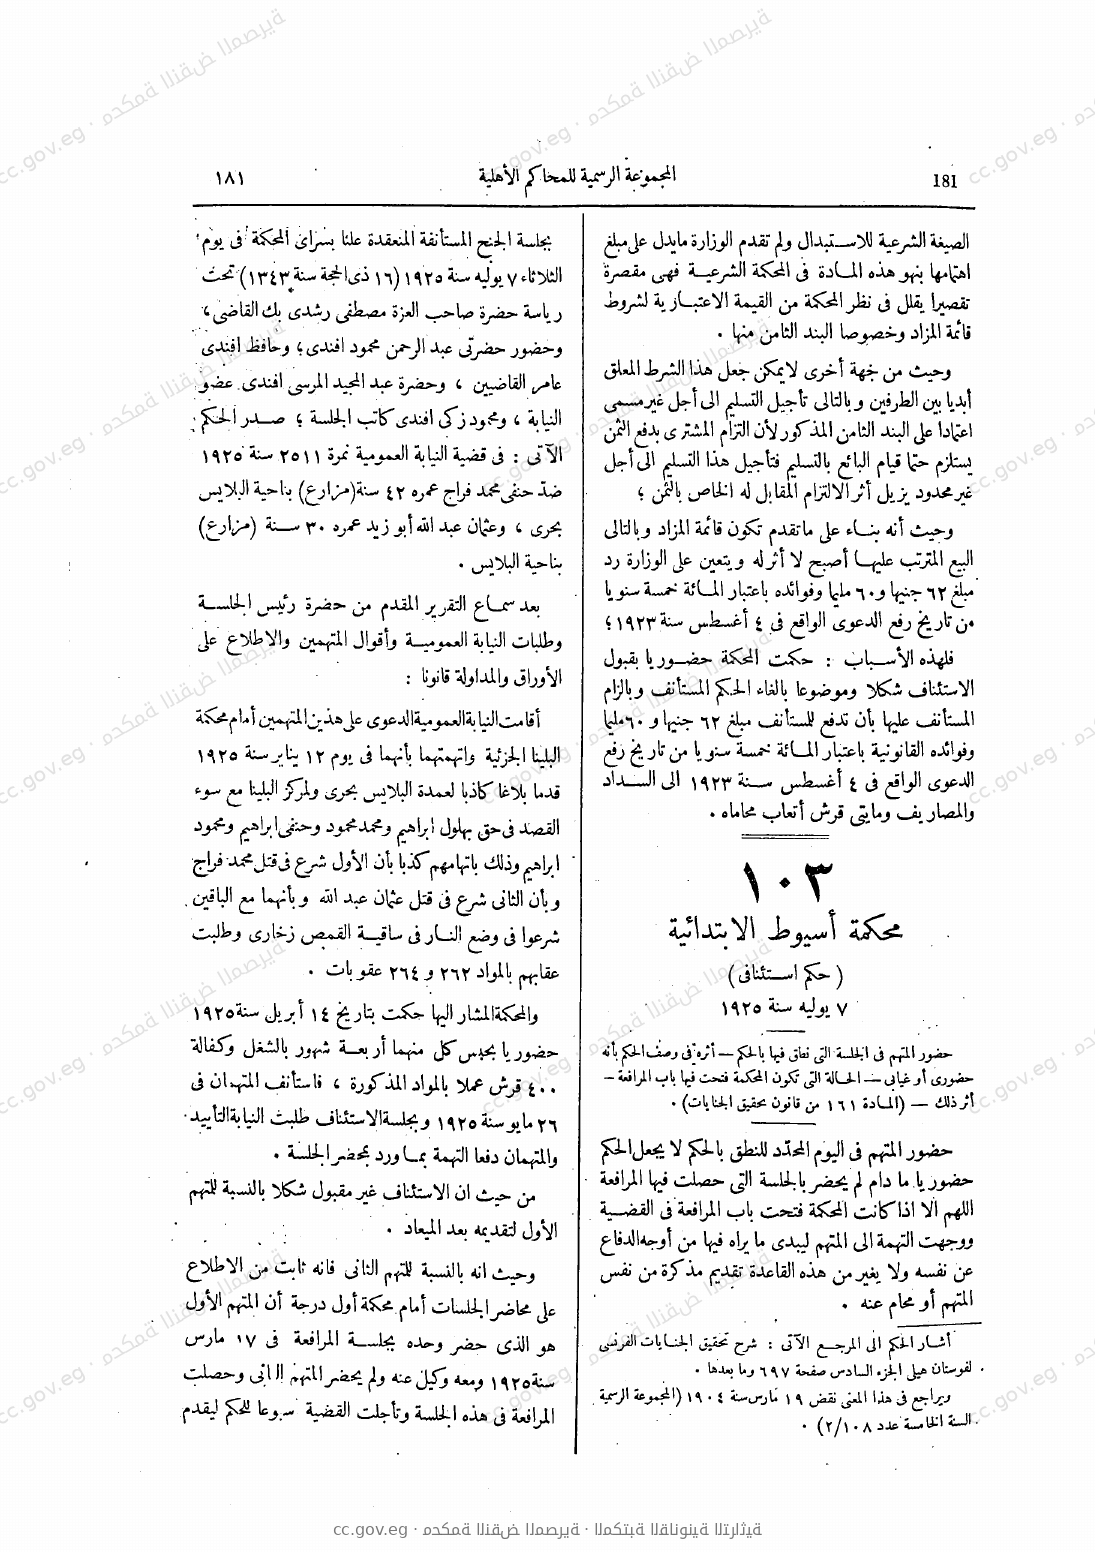 181
المجموعة الرسمية للمحاكم الأهلية
١٨١
الصيغة الشرعية للاستبدال ولم تقدم الوزارة مايدل على مبلغ
اهتمامها بنهو هذه المادة فى المحكمة الشرعية فهى مقصرة
تقصيرا يقلل فى نظر المحكمة من القيمة الاعتبارية لشروط
قائمة المزاد وخصوصا البند الثامن منها .
وحيث من جهة أخرى لايمكن جعل هذا الشرط المعلق
أبديا بين الطرفين وبالتالى تأجيل التسليم الى أجل غير مسمى
اعتمادا على البند الثامن المذكور لأن التزام المشترى بدفع الثمن
يستلزم حتما قيام البائع بالتسليم فتأجيل هذا التسليم الى أجل
غير محدود يزيل أثر الالتزام المقابل له الخاص بالثمن ؛
وحيث أنه بناء على ماتقدم تكون قائمة المزاد وبالتالى
البيع المترتب عليها أصبح لا أثر له ويتعين على الوزارة رد
مبلغ ٦٢ جنيها و ٦٠ مليما وفوائده باعتبار المائة خمسة سنويا
من تاريخ رفع الدعوى الواقع فى ٤ أغسطس سنة ١٩٢٣ ؛
فلهذه الأسباب : حكمت المحكمة حضوريا بقبول
الاستئناف شكلا وموضوعا بالغاء الحكم المستأنف وبالزام
المستأنف عليها بأن تدفع للمستأنف مبلغ ٦٢ جنيها و ٦٠ مليما
وفوائده القانونية باعتبار المائة خمسة سنويا من تاريخ رفع
الدعوى الواقع فى ٤ أغسطس سنة ١٩٢٣ الى السداد
والمصاريف ومايتى قرش أتعاب محاماه .
١٠٣
محكمة أسيوط الابتدائية
( حكم استئنافى )
٧ يوليه سنة ١٩٢٥
حضور المتهم فى الجلسة التى نطق فيها بالحكم — أثره فى وصف الحكم بأنه
حضورى أو غيابى — الحالة التى تكون المحكمة فتحت فيها باب المرافعة —
أثر ذلك — (المادة ١٦١ من قانون تحقيق الجنايات) .
حضور المتهم فى اليوم المحدّد للنطق بالحكم لا يجعل الحكم
حضوريا ما دام لم يحضر بالجلسة التى حصلت فيها المرافعة
اللهم الا اذا كانت المحكمة فتحت باب المرافعة فى القضية
ووجهت التهمة الى المتهم ليبدى ما يراه فيها من أوجه الدفاع
عن نفسه ولا يغير من هذه القاعدة تقديم مذكرة من نفس
المتهم أو محام عنه .
أشار الحكم الى المرجع الآتى : شرح تحقيق الجنايات الفرنسى
لفوستان هيلى الجزء السادس صفحة ٦٩٧ وما بعدها .
ويراجع فى هذا المعنى نقض ١٩ مارس سنة ١٩٠٤ (المجموعة الرسمية
السنة الخامسة عدد ٢/١٠٨) .
بجلسة الجنح المستأنفة المنعقدة علنا بسراى المحكمة فى يوم
الثلاثاء ٧ يوليه سنة ١٩٢٥ (١٦ ذى الحجة سنة ١٣٤٣) تحت
رياسة حضرة صاحب العزة مصطفى رشدى بك القاضى ،
وحضور حضرتى عبد الرحمن محمود افندى ؛ وحافظ افندى
عامر القاضيين ، وحضرة عبد المجيد المرسى افندى عضو
النيابة ، ومحمود زكى افندى كاتب الجلسة ؛ صدر الحكم
الآتى : فى قضية النيابة العمومية نمرة ٢٥١١ سنة ١٩٢٥
ضدّ حنفى محمد فراج عمره ٤٢ سنة (مزارع) بناحية البلايس
بحرى ، وعثمان عبد الله أبو زيد عمره ٣٠ سنة (مزارع)
بناحية البلايس .
بعد سماع التقرير المقدم من حضرة رئيس الجلسة
وطلبات النيابة العمومية وأقوال المتهمين والاطلاع على
الأوراق والمداولة قانونا :
أقامت النيابة العمومية الدعوى على هذين المتهمين أمام محكمة
البلينا الجزئية واتهمتهما بأنهما فى يوم ١٢ يناير سنة ١٩٢٥
قدما بلاغا كاذبا لعمدة البلايس بحرى ولمركز البلينا مع سوء
القصد فى حق بهلول ابراهيم ومحمد محمود وحنفى ابراهيم ومحمود
ابراهيم وذلك باتهامهم كذبا بأن الأول شرع فى قتل محمد فراج
وبأن الثانى شرع فى قتل عثمان عبد الله وبأنهما مع الباقين
شرعوا فى وضع النار فى ساقية القمص زخارى وطلبت
عقابهم بالمواد ٢٦٢ و ٢٦٤ عقوبات .
والمحكمة المشار اليها حكمت بتاريخ ١٤ أبريل سنة ١٩٢٥
حضوريا بحبس كل منهما أربعة شهور بالشغل وكفالة
٤٠٠ قرش عملا بالمواد المذكورة ، فاستأنف المتهمان فى
٢٦ مايو سنة ١٩٢٥ وبجلسة الاستئناف طلبت النيابة التأييد
والمتهمان دفعا التهمة بما ورد بمحضر الجلسة .
من حيث ان الاستئناف غير مقبول شكلا بالنسبة للمتهم
الأول لتقديمه بعد الميعاد .
وحيث انه بالنسبة للمتهم الثانى فانه ثابت من الاطلاع
على محاضر الجلسات أمام محكمة أول درجة أن المتهم الأول
هو الذى حضر وحده بجلسة المرافعة فى ١٧ مارس
سنة ١٩٢٥ ومعه وكيل عنه ولم يحضر المتهم الثانى وحصلت
المرافعة فى هذه الجلسة وتأجلت القضية أسبوعا للحكم ليقدم
cc.gov.eg · محكمة النقض المصرية · المكتبة القانونية التراثية